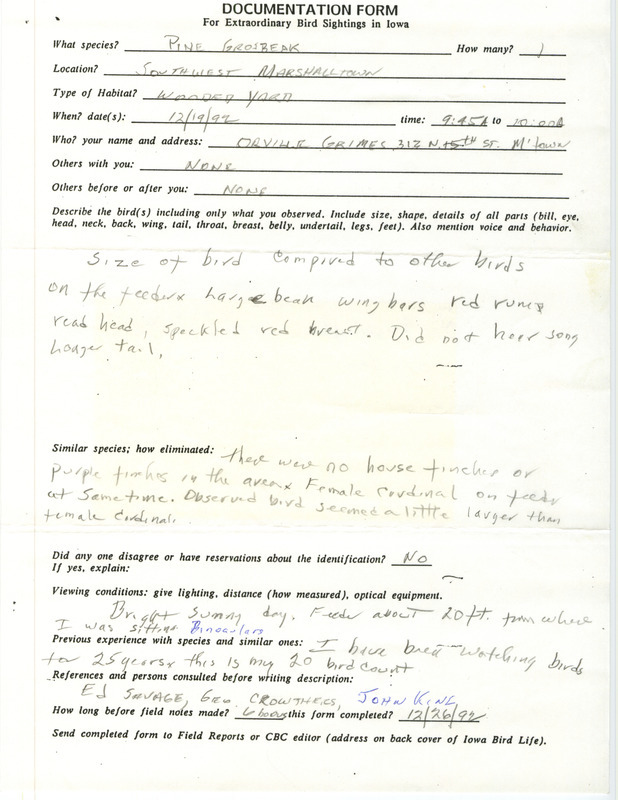 DOCUMENTATION FORM
For Extraordinary Bird Sightings in Iowa
What species? PINE GROSBEAK How many? 1
Location? SOUTHWEST MARSHALLTOWN
Type of Habitat? WOODED YARD
When? date(s): 12/19/92 time: 9:45A to 10:00A
Who? your name and address: ORVILLE GRIMES 312 N. 15th ST. M'town
Others with you: NONE
Others before or after you: NONE
Describe the bird(s) including only what you observed. Include size, shape, details of all parts (bill, eye,
head, neck, back, wing, tail, throat, breast, belly, undertail, legs, feet). Also mention voice and behavior.
Size of bird compired to other birds
on the feeder x Large beak wing bars red rump
read head, speckled red breast. Did not hear song
Longer tail.
Similar species; how eliminated: there were no house finches or
purple finches in the area x Female Cardinal on feeder
at sametime. Observed bird seemed a little larger than
female Cardinal.
Did any one disagree or have reservations about the identification? NO
If yes, explain:
Viewing conditions: give lighting, distance (how measured), optical equipment.
Bright Sunny day. Feeder about 20ft. from where
I was sitting Binoculars
Previous experience with species and similar ones: I have been watching birds
for 25 years x this is my 20 bird count
References and persons consulted before writing description:
Ed SAVAGE, Geo CROWTHERS, JOHN KING
How long before field notes made? 6 hours this form completed? 12/26/92
Send completed form to Field Reports or CBC editor (address on back cover of Iowa Bird Life).